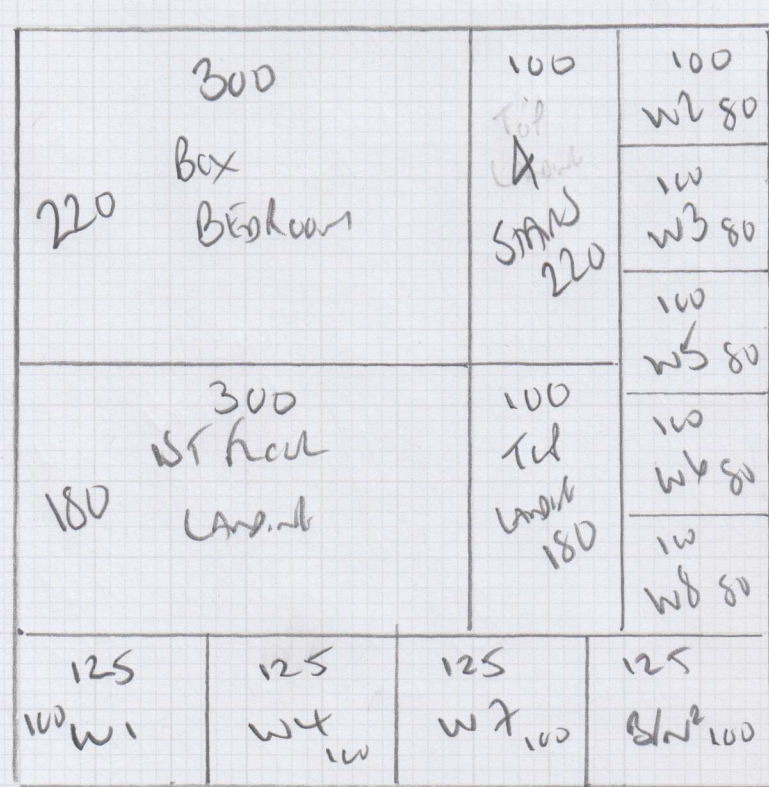 300
BOX
BEDROOM
220
100
TOP
LANDING
A
STAIRS
220
100
W2 80
100
W3 80
100
W5 80
100
W6 80
100
W8 80
300
1ST FLOOR
LANDING
180
100
TOP
LANDING
180
125
100 W1
125
W4 100
125
W7 100
125
100